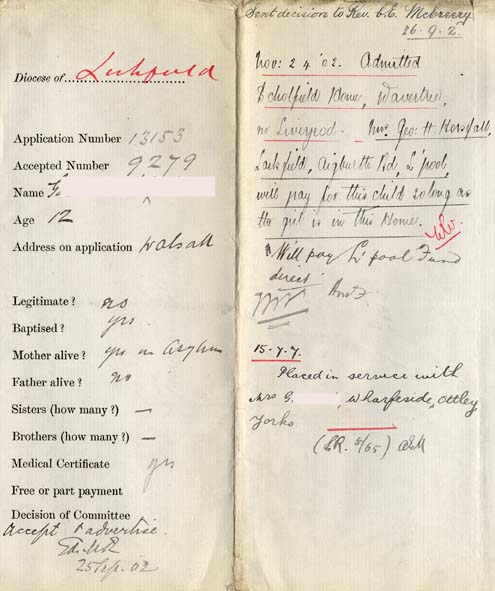 Diocese of Lichfield
Application Number 13153
Accepted Number 9279
Name F
Age 12
Address on application Walsall
Legitimate? no
Baptised? yes
Mother alive? yes in Asylum
Father alive? no
Sisters (how many?) —
Brothers (how many?) —
Medical Certificate yes
Free or part payment
Decision of Committee
Accept & advertise.
25 Sep. 02
Sent decision to Rev. C.E. McCreery.
26.9.2.
Nov: 24 '02. Admitted
Scholfield Home, Wavertree,
nr Liverpool. Mrs Geo: H. Horsfall,
Larkfield, Aigburth Rd, L'pool,
will pay for this child so long as
the girl is in this Home.
Will pay L'pool Fund
direct.
15.7.7.
Placed in service with
Mrs G. Wharfeside, Ottley
Yorks